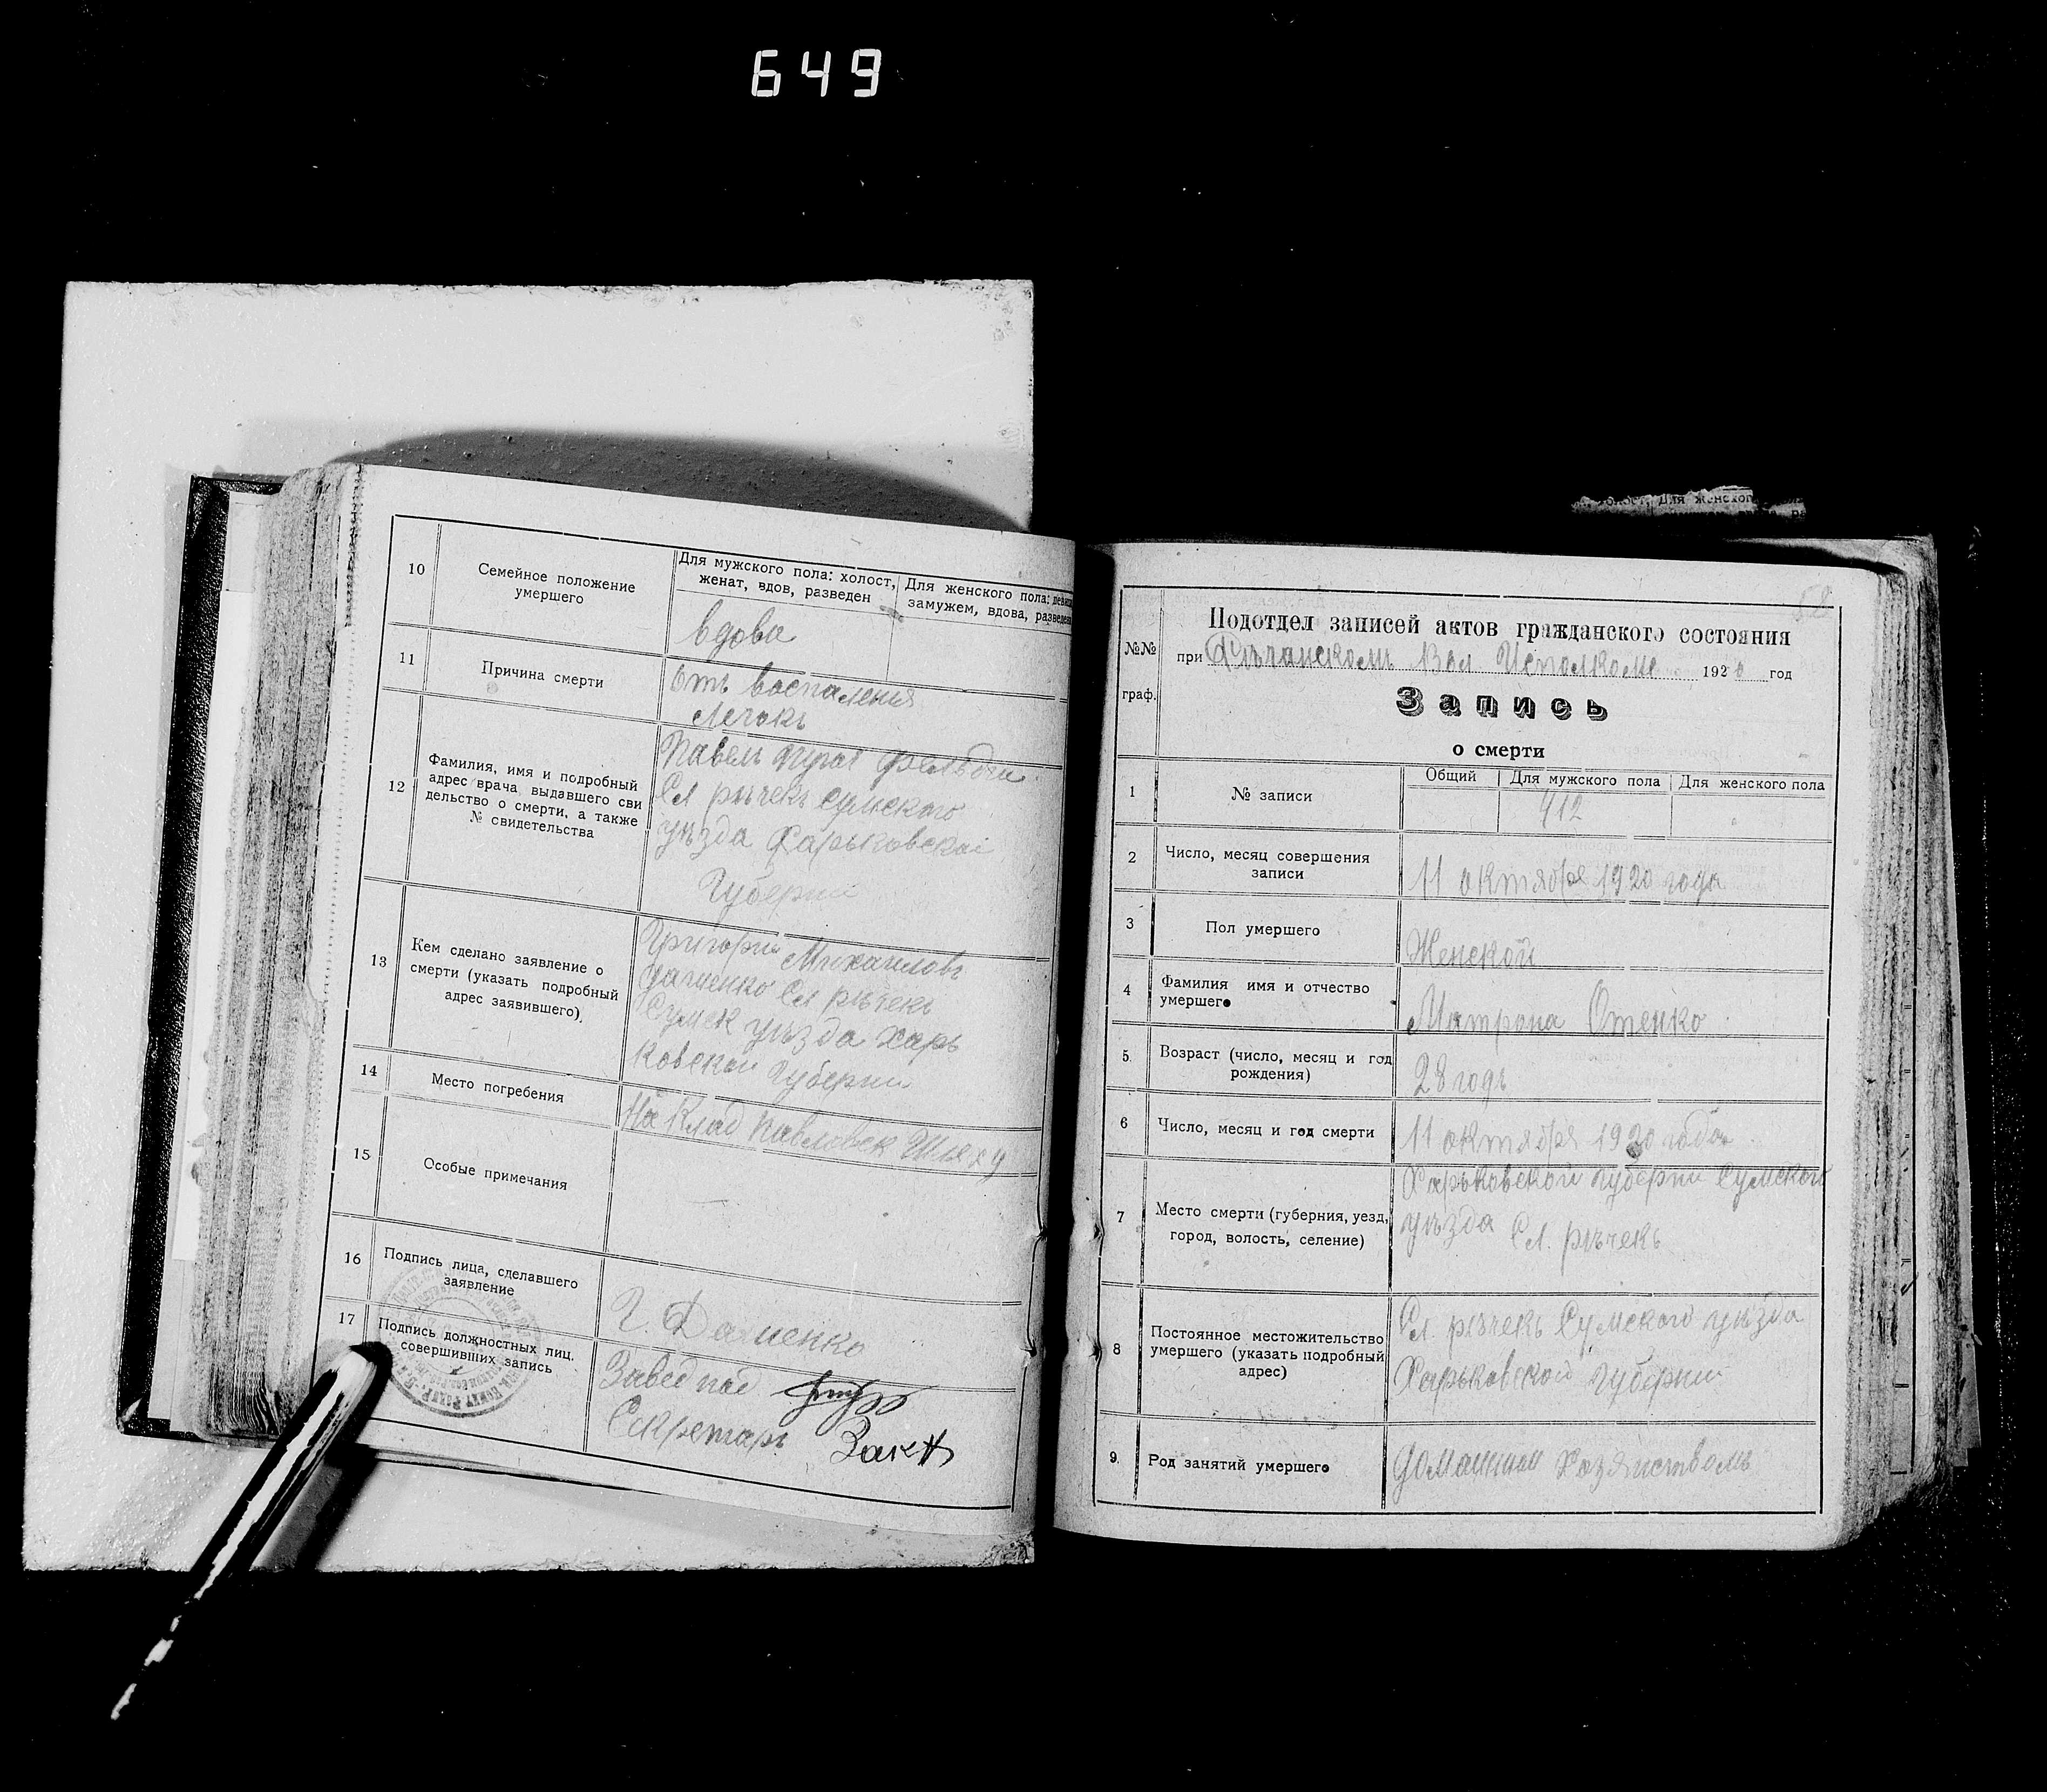 649
10
Семейное положение
умершего
Для мужского пола: холост,
женат, вдов, разведен
Для женского пола: девица
замужем, вдова, разведен
вдова
11
Причина смерти
Отъ воспаления
Легокъ
12
Фамилия, имя и подробный
адрес врача, выдавшего сви
дельство о смерти, а также
№ свидетельства
Павелъ
Сл речекъ Сумского
уѣзда Харьковской
Губернии
13
Кем сделано заявление о
смерти (указать подробный
адрес заявившего)
Григории Михаиловъ
Даценко Сл рѣчекъ
Сумск уѣзда Харь
ковской Губернии
14
Место погребения
На Клад Павловск Шляху
15
Особые примечания
16
Подпись лица, сделавшего
заявление
Г. Даценко
17
Подпись должностных лиц,
совершивших запись
Завед под
Секретарь
58
№№
граф.
Подотдел записей актов гражданского состояния
при Рѣчанскомъ Вол Исполкоме 1920 год
Запись
о смерти
1
№ записи
Общий
Для мужского пола
Для женского пола
412
2
Число, месяц совершения
записи
11 октября 1920 года
3
Пол умершего
Женской
4
Фамилия имя и отчество
умершего
Матрона Отенко
5.
Возраст (число, месяц и год
рождения)
28 годъ
6
Число, месяц и год смерти
11 октября 1920 года
7
Место смерти (губерния, уезд,
город, волость, селение)
Харьковской Губернии Сумской
уѣзда Сл. рѣчекъ
8
Постоянное местожительство
умершего (указать подробный
адрес)
Сл. рѣчекъ Сумского уѣзда
Харьковской Губернии
9.
Род занятий умершего
Домашнии Хозяиствомъ